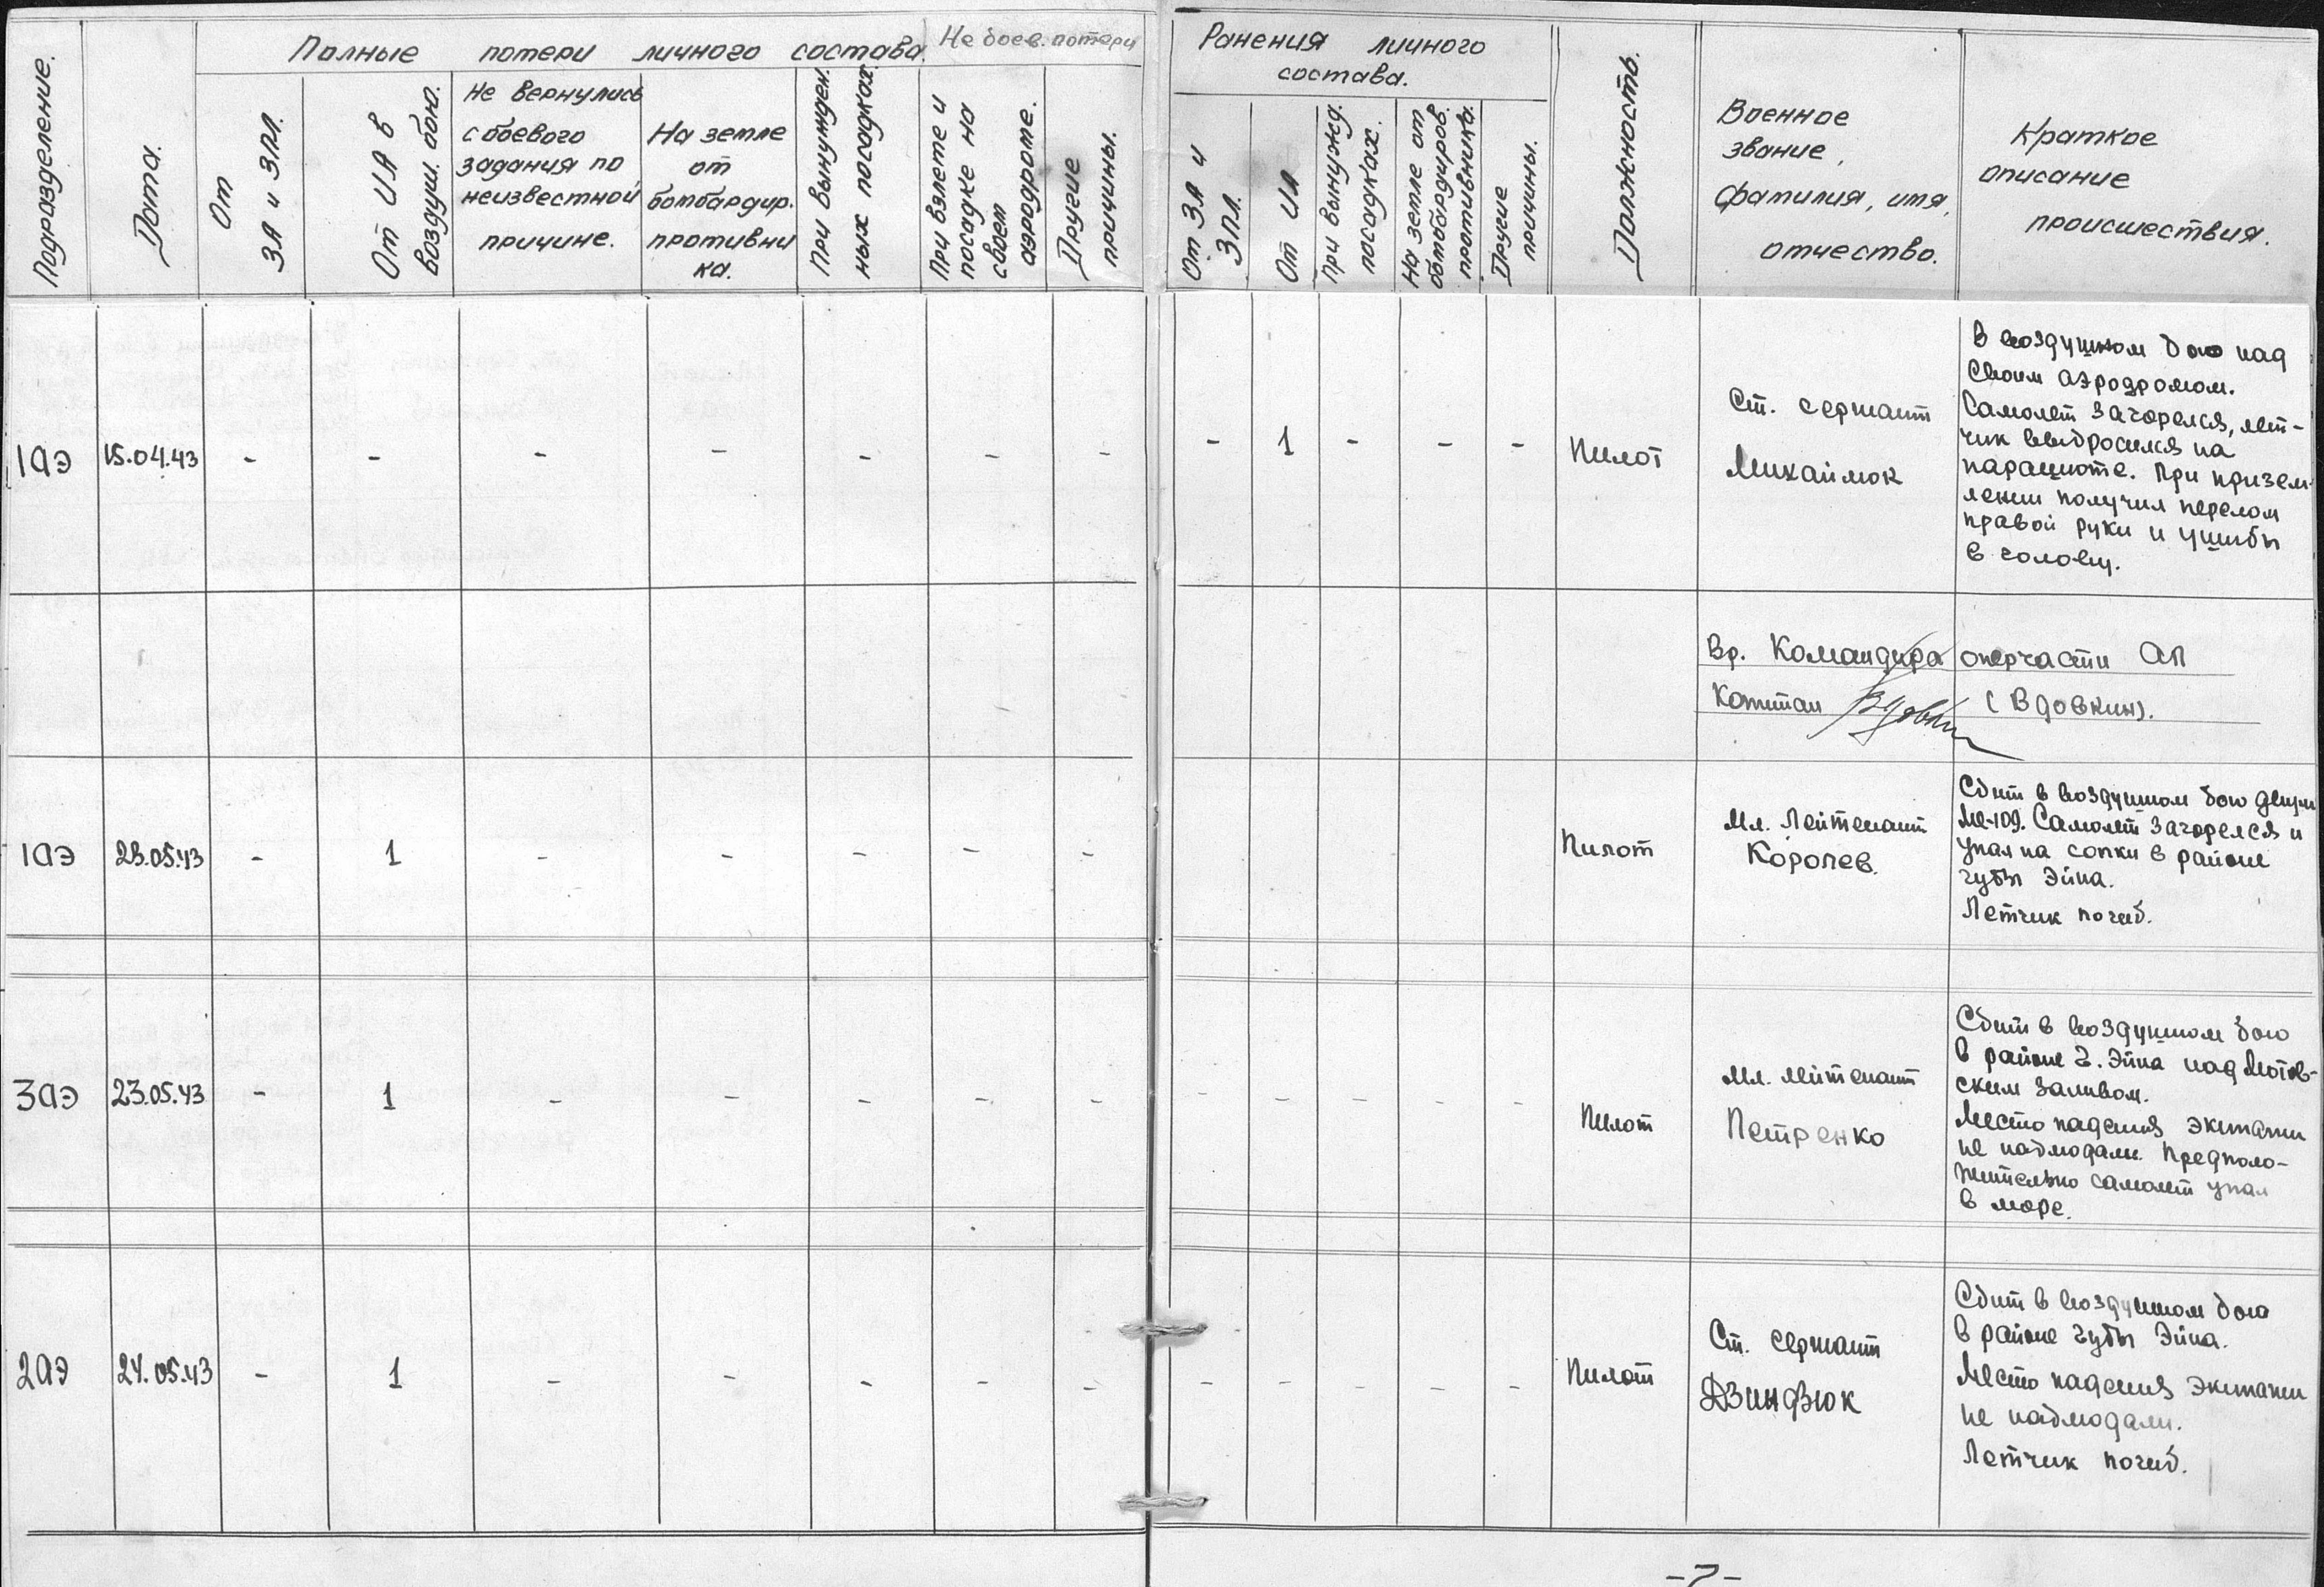 Подразделение.
Дата.
Полные потери личного состава.
Не боев. потери
От
ЗА и ЗПЛ.
От ИА в
воздуш. бою.
Не вернулись
с боевого
задания по
неизвестной
причине.
На земле
от
бомбардир.
противни
ка.
При вынужден.
ных посадках.
При взлете и
посадке на
своем
аэродроме.
Другие
причины.
Ранения личного
состава.
От ЗА и
ЗПЛ.
От ИА
При вынужд.
посадках.
На земле от
бомбардиров.
противника.
Другие
причины.
Должность.
Военное
звание,
фамилия, имя,
отчество.
Краткое
описание
происшествия.
1аэ 15.04.43 - - - - - - - - 1 - - - Пилот
Ст. сержант
Михайлюк
В воздушном бою над
своим аэродромом.
Самолет загорелся, лет-
чик выбросился на
парашюте. При призем-
лении получил перелом
правой руки и ушибы
в голову.
Вр. Командира оперчасти АП
Капитан Вдовкин (Вдовкин).
1аэ 23.05.43 - 1 - - - - - Пилот
Мл. Лейтенант
Королев.
Сбит в воздушном бою двумя
Ме-109. Самолет загорелся и
упал на сопки в районе
губы Эйна.
Летчик погиб.
3аэ 23.05.43 - 1 - - - - - - - - - - Пилот
Мл. лейтенант
Петренко
Сбит в воздушном бою
в районе г. Эйна над Мотов-
ским заливом.
Место падения экипажи
не наблюдали. Предполо-
жительно самолет упал
в море.
2аэ 24.05.43 - 1 - - - - - - - - - - Пилот
Ст. сержант
Дзиндзюк
Сбит в воздушном бою
в районе губы Эйна.
Место падения экипажи
не наблюдали.
Летчик погиб.
-7-